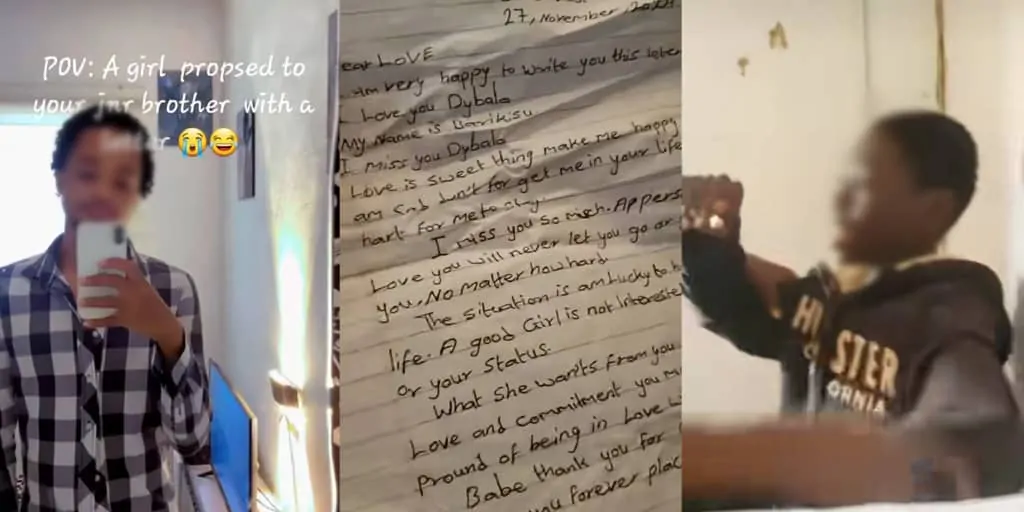 POV: A girl propsed to
your jnr brother with a
😭😄
27, November, 2024
ear LOVE
am very happy to write you this leter
I Love you Dybala
My Name is Barikisu
I miss you Dybala
Love is sweet thing make me happy
am and don't for get me in your life
hart for me to
I miss you so much. A pers
Love you will never let you go or
you. No matter how hard
The situation is am lucky to
life. A good Girl is not Interested
or your Status.
What She wants from you
Love and commitment you
Pround of being in Love
Babe thank you for
you forever plac
STER
ORNIA